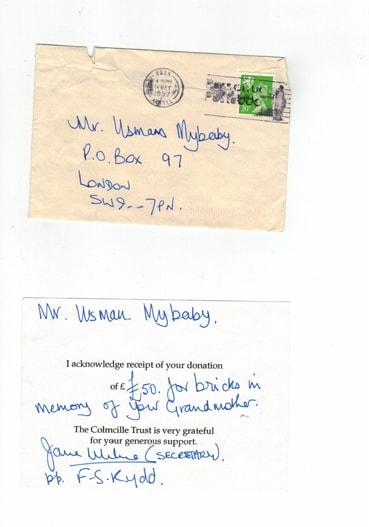 OBAN
1997
ARGYLL
20
Mr. Usmans Mybaby.
P.O. Box 97
LONDON
SW9--7PN.
Mr. Usman Mybaby.
I acknowledge receipt of your donation
of £ £50. for bricks in
memory of your Grandmother.
The Colmcille Trust is very grateful
for your generous support.
Jane Milne (SECRETARY).
pp. F-S-Kydd.